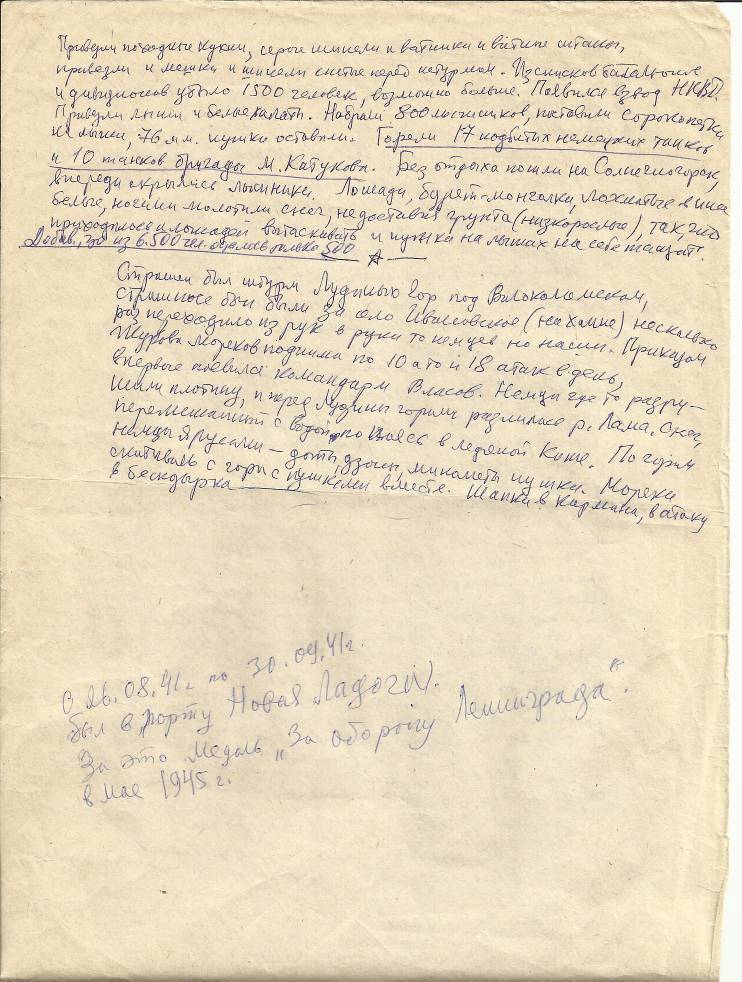 Привезли походные кухни, серые шинели и ватники и ватные штаны,
привезли и мешки и шинели снятые перед штурмом. Из списков батальонов
и дивизионов убыло 1500 человек, возможно больше. Появился взвод НКВД.
Привезли лыжи и белые халаты. Набрали 800 лыжников, поставили сорокопятки
на лыжи, 76 мм. пушки оставили. Горели 17 подбитых немецких танков
и 10 танков бригады М. Катукова. Без отдыха пошли на Солнечногорск,
впереди скрылись лыжники. Лошади, бурят-монголки, лохматые в инее
белые, ногами молотили снег, не доставая грунта (низкорослые), так, что
приходилось и лошадей вытаскивать и пушки на лыжах на себе тащить.
Добав, что из 6.500 чел. осталось только 500
Страшен был штурм Лудиных Гор под Волоколамском,
страшное бои были за село Ивановское (на холме) несколько
раз переходило из рук в руки то немцев но наши. Приказом
Жукова моряков поднима по 10 а то и 18 атак в день,
впервые появился командарм Власов. Немцы где то разру-
шили плотину, и перед Лудины горами разлилась р. Лама. Снег,
перемешанный с водой, по пояс в ледяной каше. По горам
немцы ярусами – доты дзоты, миномёты пушки. Моряки
скатывали с горы с пушками вместе. Шапки в карманы, в атаку
в бескозырка
С 26.08.41г по 30.09.41г.
был в порту Новая Ладога).
За это медаль „За оборону Ленинграда".
в мае 1945 г.